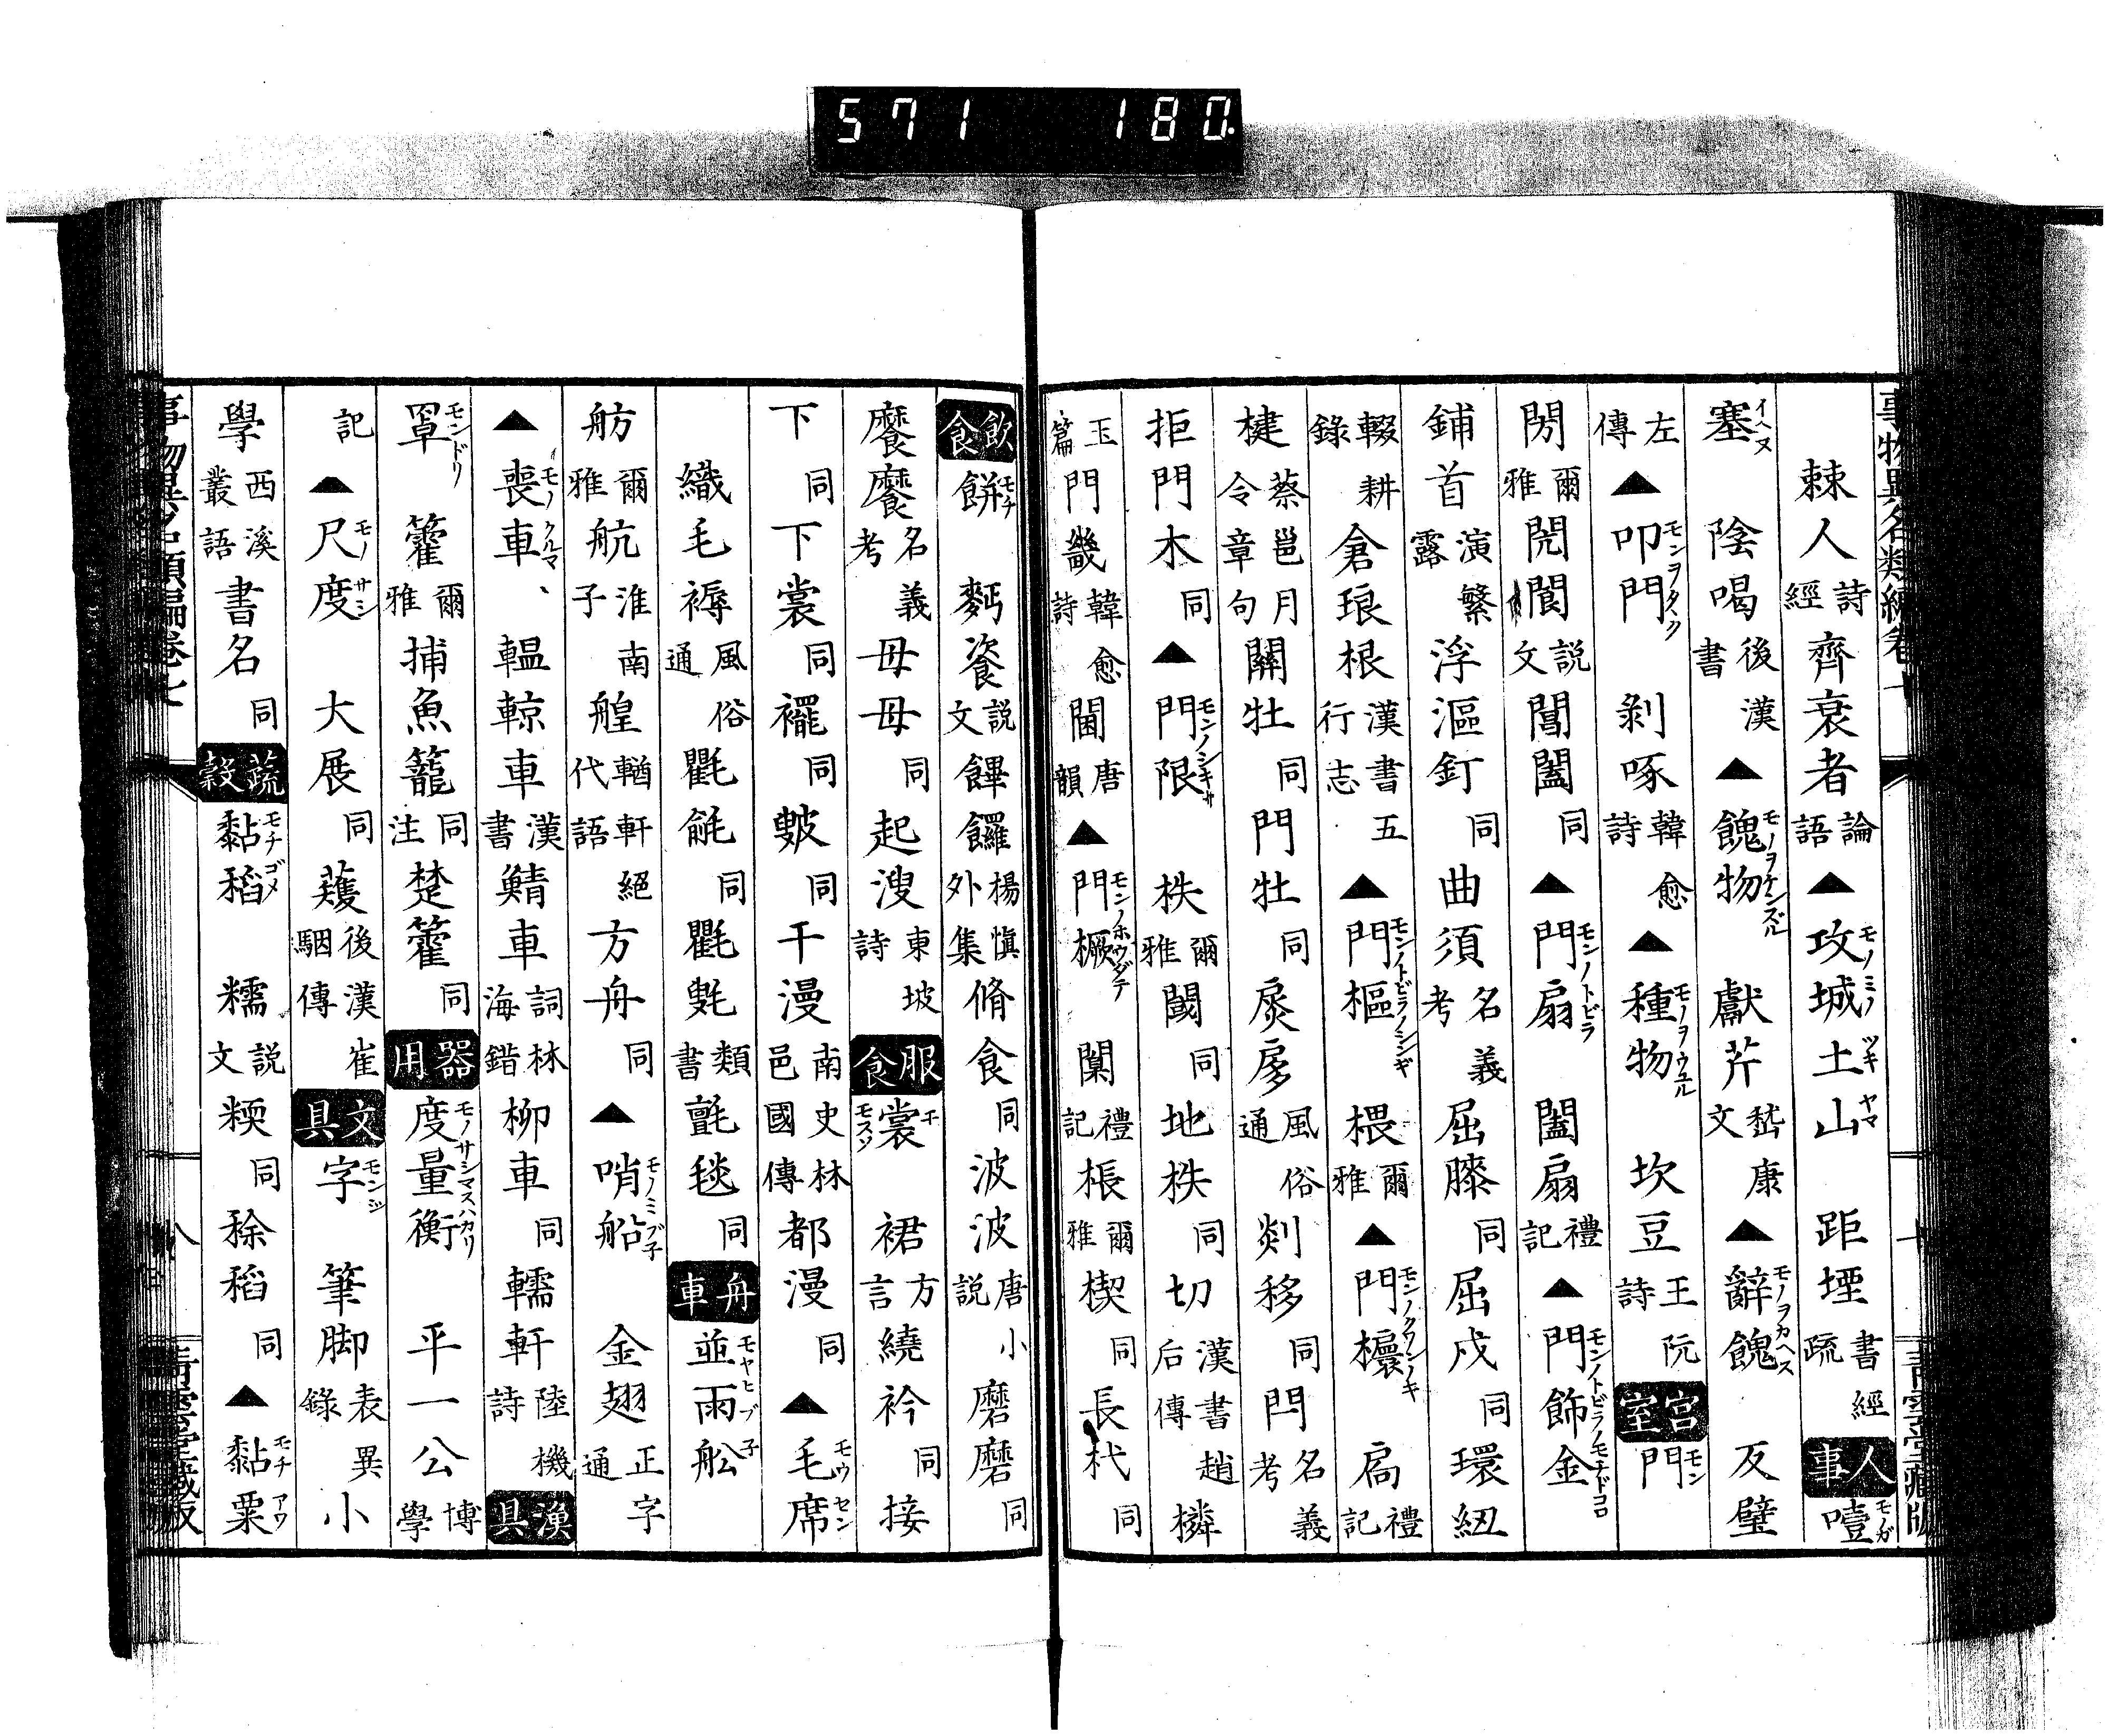 571 180
棘人 詩經 齊衰者 論語 ▲攻城土山 モノミノツキヤマ 距堙 書經疏 人事 噎 モノガ
塞 イヘヌ 陰喝 後漢書 ▲餽物 モノヲケンズル 獻芹 嵆康文 ▲辭餽 モノヲカヘス 反璧
左傳 ▲叩門 モンヲタヽク 剝啄 韓愈詩 ▲種物 モノヲウユル 坎豆 王阮詩 宮室 門 モン
閍 爾雅 閌閬 説文 閶闔 同 ▲門扇 モンノトビラ 闔扇 禮記 ▲門飾金 モンノトビラノモナドコロ
鋪首 演繁露 浮漚釘 同 曲須 名義考 屈膝 同 屈戌 同 環紐
輟耕錄 倉琅根 漢書五行志 ▲門樞 モンノトビラノシンギ 椳 爾雅 ▲門欀 モンノクワンノキ 扃 禮記
楗 蔡邕月令章句 關牡 同 門牡 同 扊扅 風俗通 剡移 同 閂 名義考
拒門木 同 ▲門限 モンノシキサ 柣 爾雅 閾 同 地柣 同 切 漢書趙后傳 橉
玉篇 門畿 韓愈詩 閫 唐韻 ▲門橛 モンノホウダテ 闑 禮記 棖 爾雅 楔 同 長杙 同
飲食 餅 モチ 麪餈 説文 饆饠 楊慎外集 脩食 同 波波 唐小説 磨磨 同
䭧䭧 名義考 母母 同 起溲 東坡詩 服食 裳 モスソ 裙 方言 繞衿 同 接
下 同 下裳 同 襬 同 帔 同 干漫 南史林邑國傳 都漫 同 ▲毛席 モウセン
織毛褥 風俗通 氍㲘 同 氍毹 類書 氈毯 同 舟車 並兩舩 モヤヒブ子
舫 爾雅 航 淮南子 艎 輶軒絕代語 方舟 同 ▲哨船 モノミブ子 金翅 正字通
▲喪車 モノクルマ 轀輬車 漢書 鯖車 詞林海錯 柳車 同 轜軒 陸機詩 漁具
罩 モンドリ 籗 爾雅 捕魚籠 同注 楚籗 同 器用 度量衡 モノサシマスハカリ 平一公 博學
記 ▲尺度 モノサシ 大展 同 蒦 後漢崔駰傳 文具 字 モンジ 筆脚 表異錄 小
學 西溪叢語 書名 同 蔬穀 黏稻 モチゴメ 糯 説文 稬 同 稌稻 同 ▲黏粟 モチアワ